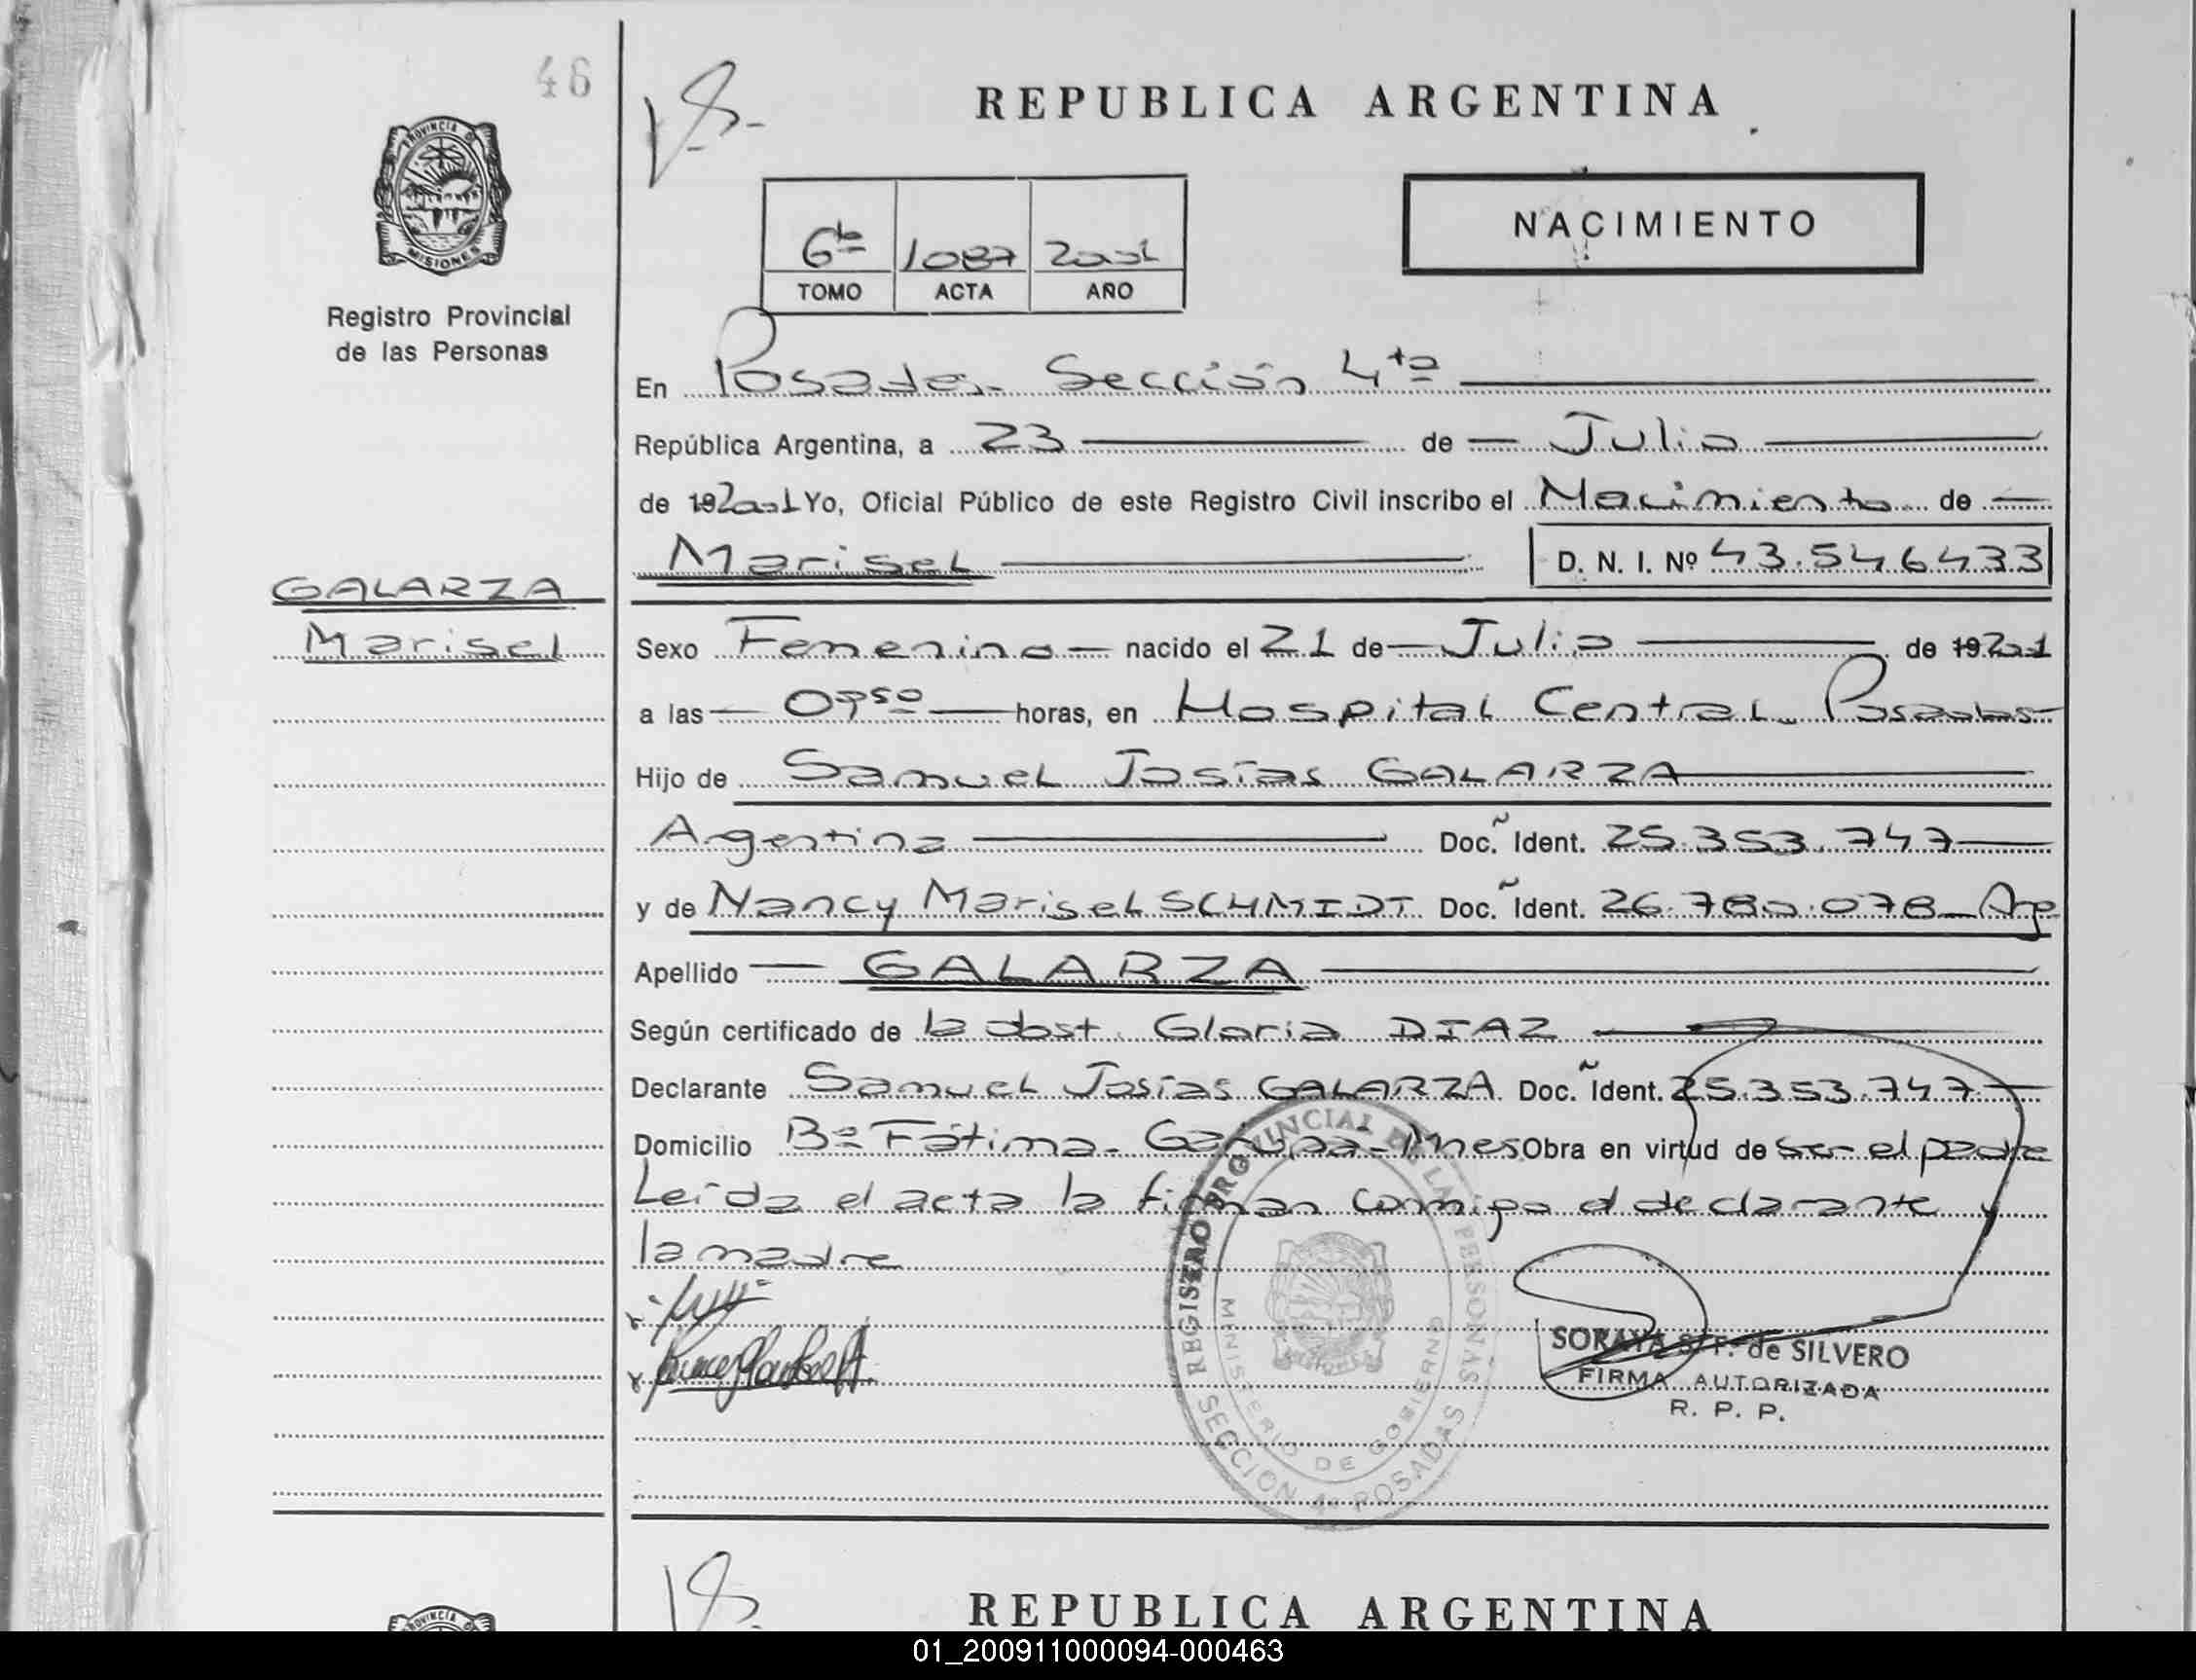 46
REPUBLICA ARGENTINA
PROVINCIA DE
MISIONES
NACIMIENTO
6to 1087 2001
TOMO ACTA AÑO
Registro Provincial
de las Personas
En Posadas. Sección 4ta
República Argentina, a 23 de Julio
de 192001 Yo, Oficial Público de este Registro Civil inscribo el Nacimiento de
Marisel D. N. I. Nº 43.546433
GALARZA
Marisel
Sexo Femenino nacido el 21 de Julio de 192001
a las 0950 horas, en Hospital Central. Posadas
Hijo de Samuel Josías GALARZA
Argentina Doc. Ident. 25.353.747
y de Nancy Marisel SCHMIDT Doc. Ident. 26.780.078 Arg
Apellido GALARZA
Según certificado de la obst. Gloria DIAZ
Declarante Samuel Josías GALARZA Doc. Ident. 25.353.747
Domicilio Bº Fátima. Garupá. Mnes Obra en virtud de ser el padre
Leída el acta la firman conmigo el declarante y
la madre
REGISTRO PROVINCIAL DE LAS PERSONAS
MINISTERIO DE GOBIERNO
SECCION 4ª POSADAS
SORAYA S. F. de SILVERO
FIRMA AUTORIZADA
R. P. P.
PROVINCIA
REPUBLICA ARGENTINA
01_200911000094-000463